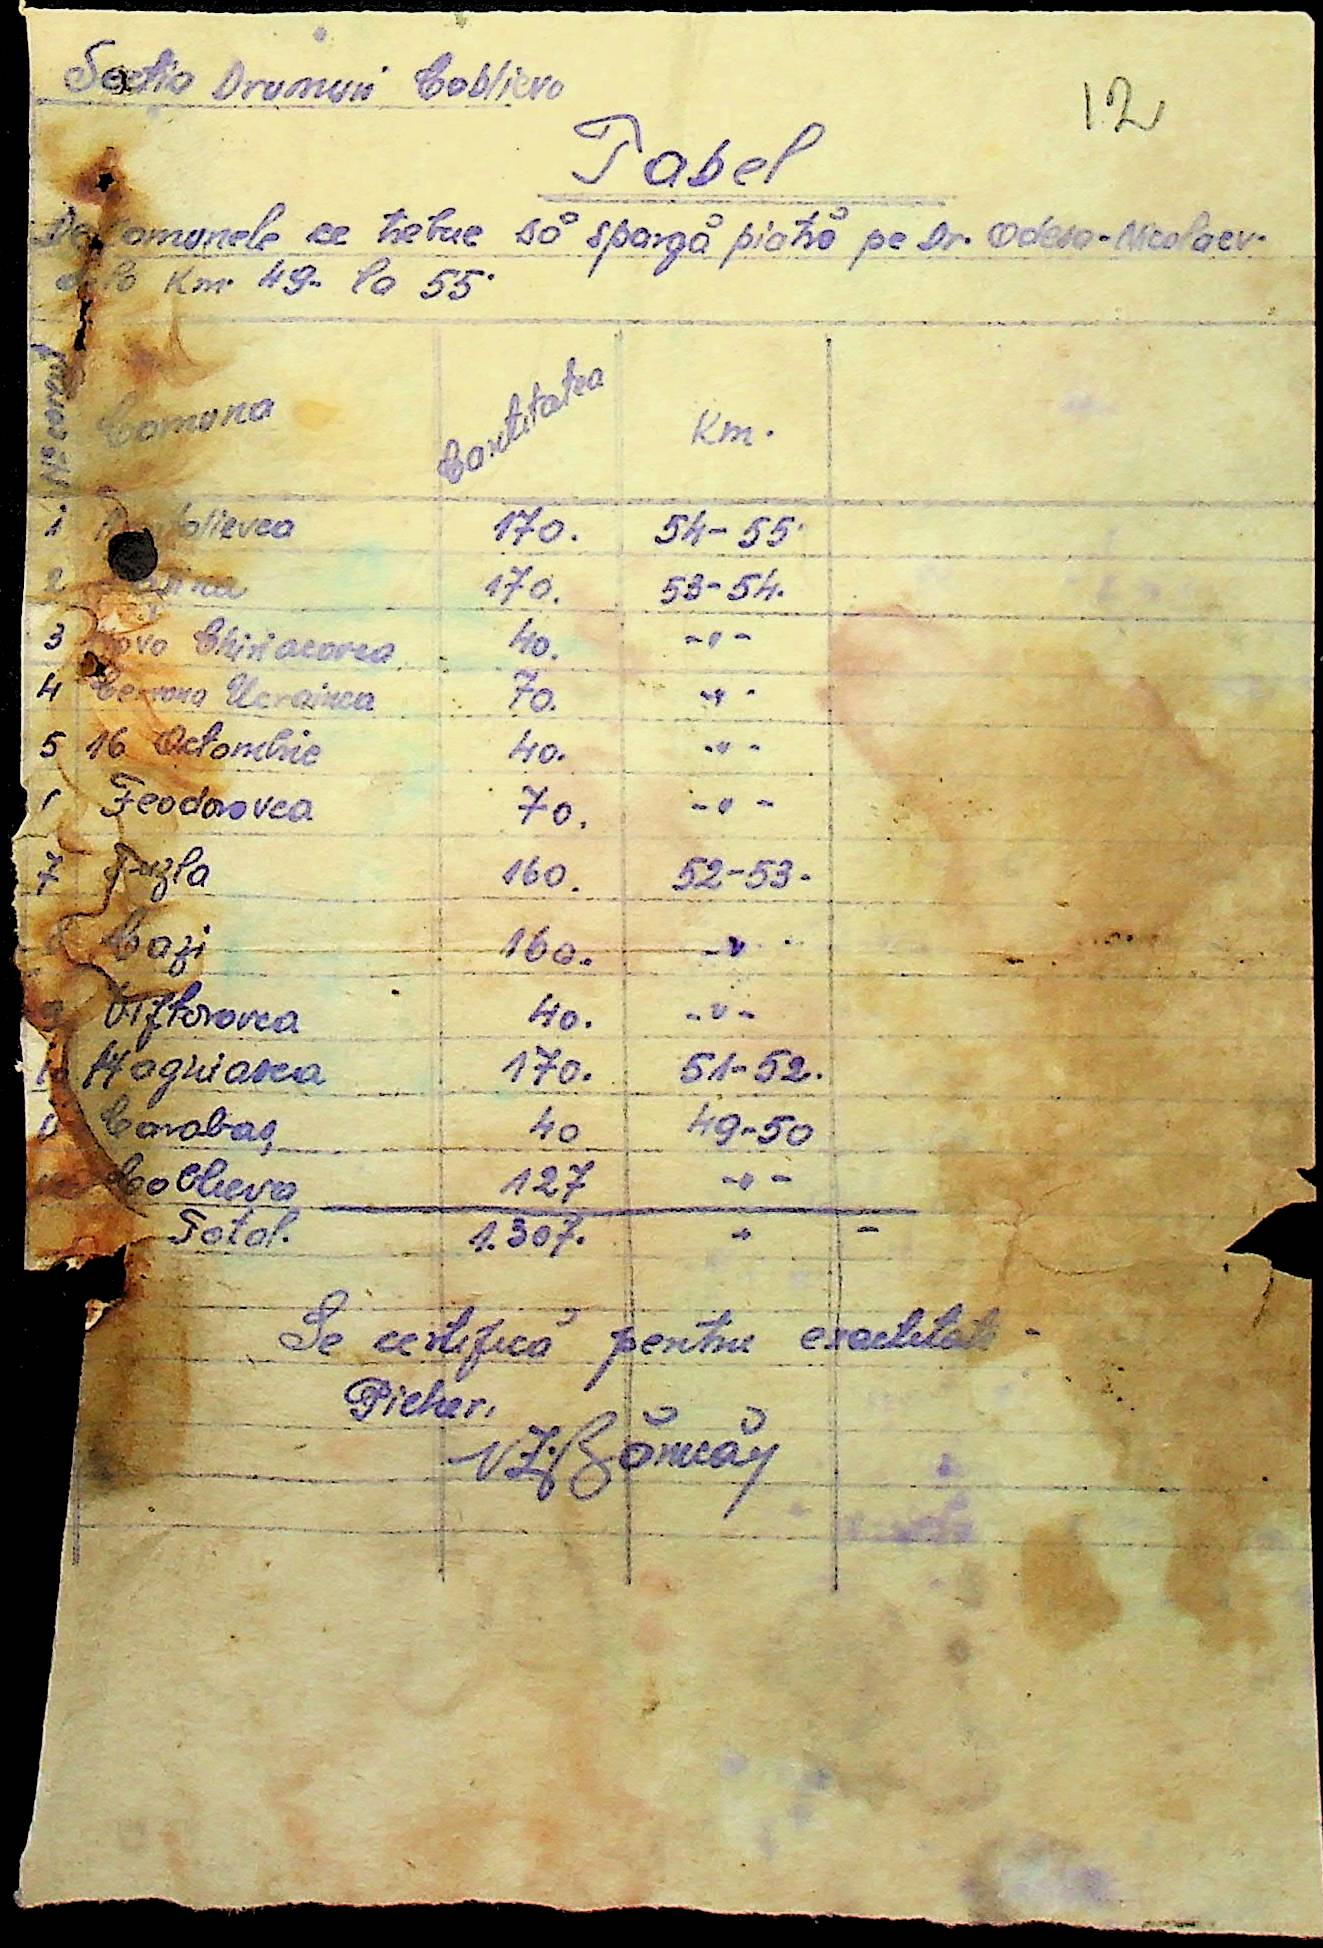 Secția Drumuri Coblievo
12
Tabel
De comunele ce trebue să spargă piatră pe Dr. Odesa-Nicolaev.
dela Km. 49- la 55.
Nr. corent Comuna Cantitatea Km.
1 170. 54-55.
2 170. 53-54.
3 Novo 40. -"-
4 Ucrainca 70. -"-
5 16 Octombrie 40. -"-
Feodorovca 70. -"-
7 Tuzla 160. 52-53.
Cazi 160. -"-
Viftorovca 40. -"-
170. 51-52.
Carabaș 40 49-50
Coblieva 127 -"-
Total. 1.307. " -
Se certifică pentru exactitate -
Picher,